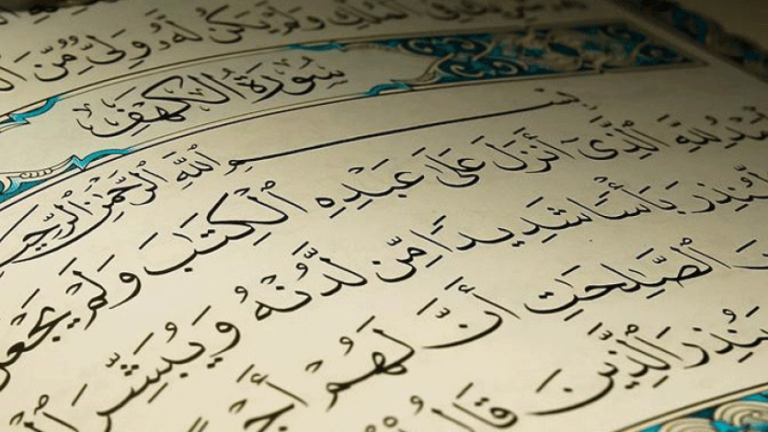 ٱلْمُلْكِ وَلَمْ يَكُن لَّهُۥ وَلِىٌّ مِّنَ
سُورَةُ الْكَهْفِ
بِسْمِ ٱللَّهِ ٱلرَّحْمَٰنِ ٱلرَّحِيمِ
لِلَّهِ ٱلَّذِىٓ أَنزَلَ عَلَىٰ عَبْدِهِ ٱلْكِتَٰبَ وَلَمْ يَجْعَل
لِّيُنذِرَ بَأْسًا شَدِيدًا مِّن لَّدُنْهُ وَيُبَشِّرَ
ٱلصَّٰلِحَٰتِ أَنَّ لَهُمْ
وَيُنذِرَ ٱلَّذِينَ